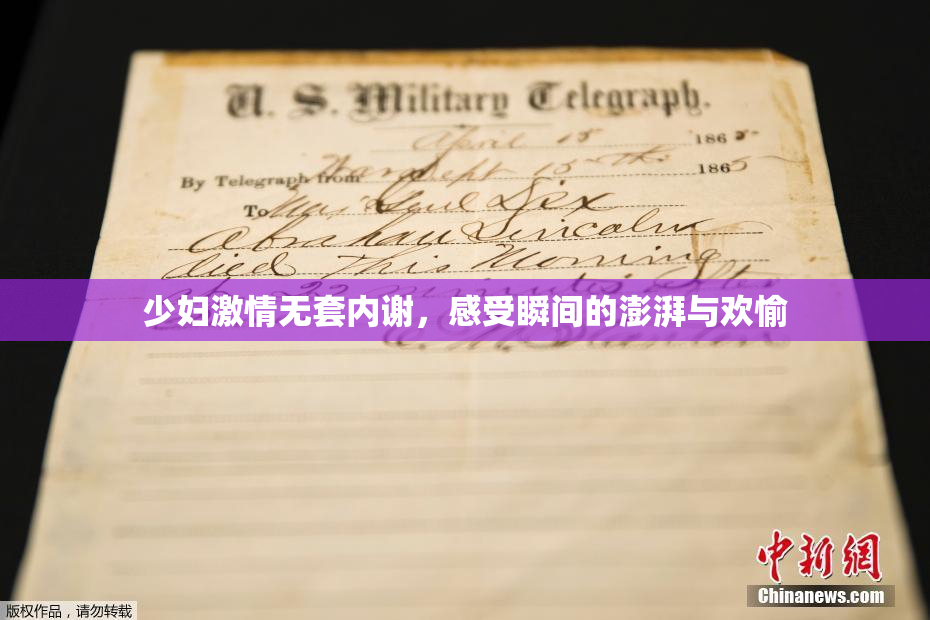 U. S. Military Telegraph.
April 15 1865
By Telegraph from War Dept 15th 1865
To Maj Genl Dix
Abraham Lincoln
died This Morning
at 22 minutes after
少妇激情无套内谢，感受瞬间的澎湃与欢愉
E. M. Stanton
中新网
Chinanews.com
版权作品，请勿转载